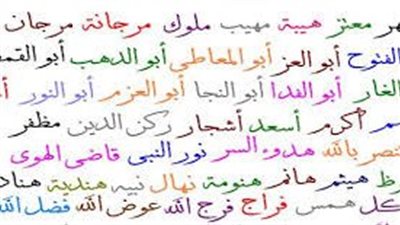 معتز هيبة مهيب ملوك مرجانة مرجان
الفتوح أبو العز أبو المعاطى أبو الدهب
الغار أبو الفدا أبو النجا أبو العزم أبو النور
أكرم أسعد أشجار ركن الدين مظفر
بالله هدوء السر نور النبى قاضى الهوى
هيثم هانم هنومة نهال نبيه هندية
همس فراج فرج الله عوض الله فضل الله